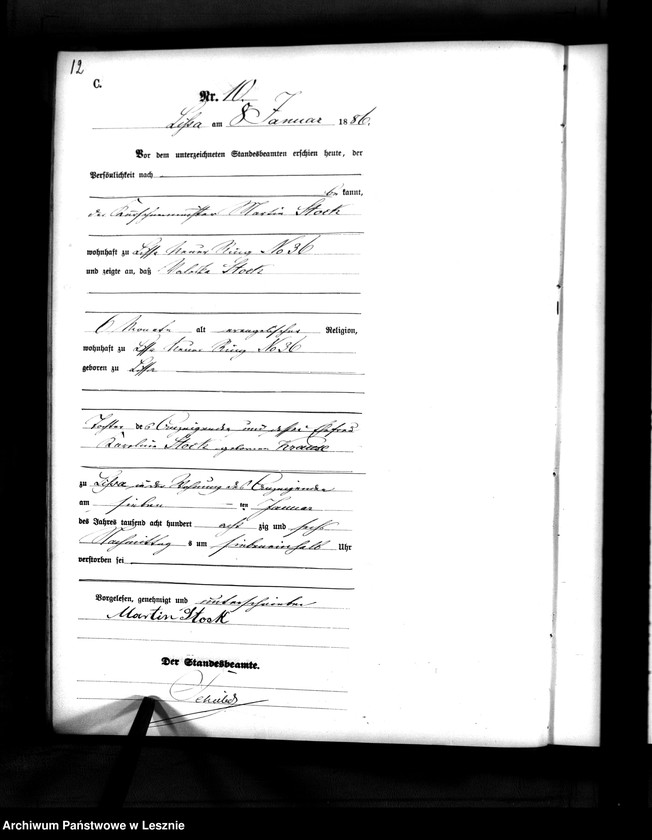 12
C.
Nr. 10.
Lissa am 8 Januar 1886.
Vor dem unterzeichneten Standesbeamten erschien heute, der
Persönlichkeit nach
be kannt,
der Martin Stock
wohnhaft zu Lissa Neuer Ring No 36
und zeigte an, daß Stock
6 Monate alt evangelischer Religion,
wohnhaft zu Lissa Neuer Ring No 36
geboren zu Lissa
Tochter des Anzeigenden und dessen Ehefrau
Karoline Stock geborenen Krause
zu Lissa in der Wohnung des Anzeigenden
am sieben ten Januar
des Jahres tausend acht hundert acht zig und sechs
Nachmittag s um siebeneinhalb Uhr
verstorben sei
Vorgelesen, genehmigt und unterschrieben
Martin Stock
Der Standesbeamte.
Archiwum Państwowe w Lesznie